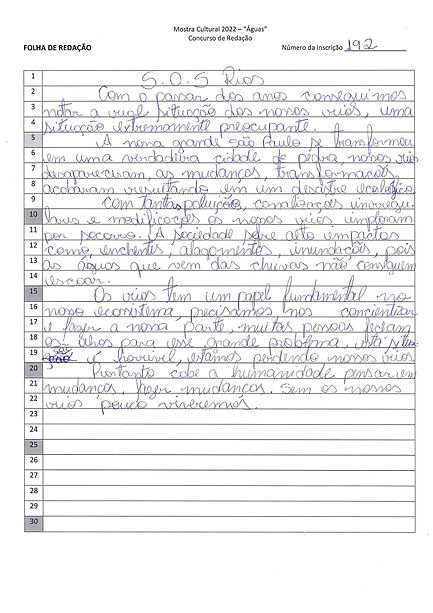 Mostra Cultural 2022 – "Águas"
Concurso de Redação
FOLHA DE REDAÇÃO Número da inscrição 192
1 S.O.S Rios
2 Com o passar dos anos conseguimos
3 notar a real situação dos nossos rios, uma
4 situação extremamente preocupante.
5 A nossa grande São Paulo se transformou
6 em uma verdadeira cidade de pedra, nossos rios
7 desapareceram, as mudanças, transformações,
8 acabaram resultando em um desastre ecológico
9 com tantas poluição, canalizações irregu-
10 lares e modificações os nossos rios imploram
11 por socorro. A sociedade sofre alto impactos
12 como, enchentes, alagamentos, inundações, pois
13 as águas que vem das chuvas não conseguem
14 escoar.
15 Os rios tem um papel fundamental no
16 nosso ecosistema, precisamos nos concientizar
17 e fazer a nossa parte, muitas pessoas fecham
18 os olhos para esse grande problema, esta situa
19 ção é horrivel, estamos perdendo nossos rios.
20 Portanto cabe a humanidade pensar em
21 mudanças, fazer mudanças. Sem os nossos
22 rios pouco viveremos.
23
24
25
26
27
28
29
30